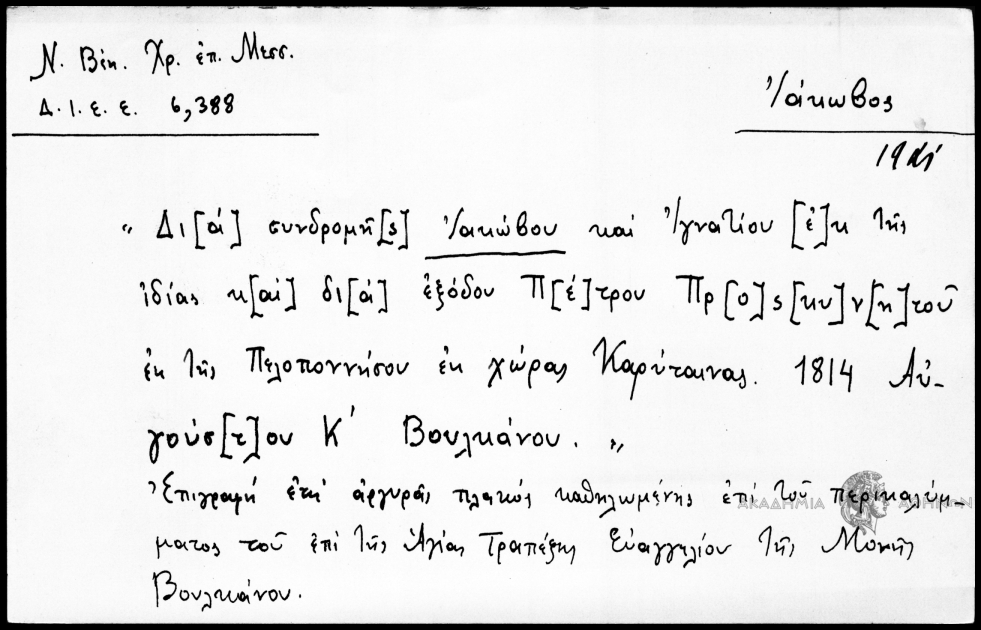 Ν. Βέη. Χρ. ἐπ. Μεσσ.
Δ. Ι. Ε. Ε. 6,388
Ἰάκωβος
19
„ Δι[ά] συνδρομῆ[ς] Ἰακώβου καί Ἰγνατίου [ἐ]κ τῆς
ἰδίας κ[αί] δι[ά] ἐξόδου Π[έ]τρου Πρ[ο]ς[κυ]ν[η]τοῦ
ἐκ τῆς Πελοποννήσου ἐκ χώρας Καρύταινας. 1814 Αὐ-
γούσ[τ]ου Κ΄ Βουλκάνου. „
Ἐπιγραφή ἐπί ἀργυρᾶς πλακός καθηλωμένης ἐπί τοῦ περικαλύμ-
ματος τοῦ ἐπί τῆς Ἁγίας Τραπέζης Εὐαγγελίου τῆς Μονῆς
Βουλκάνου.
ΑΚΑΔΗΜΙΑ ΑΘΗΝΩΝ